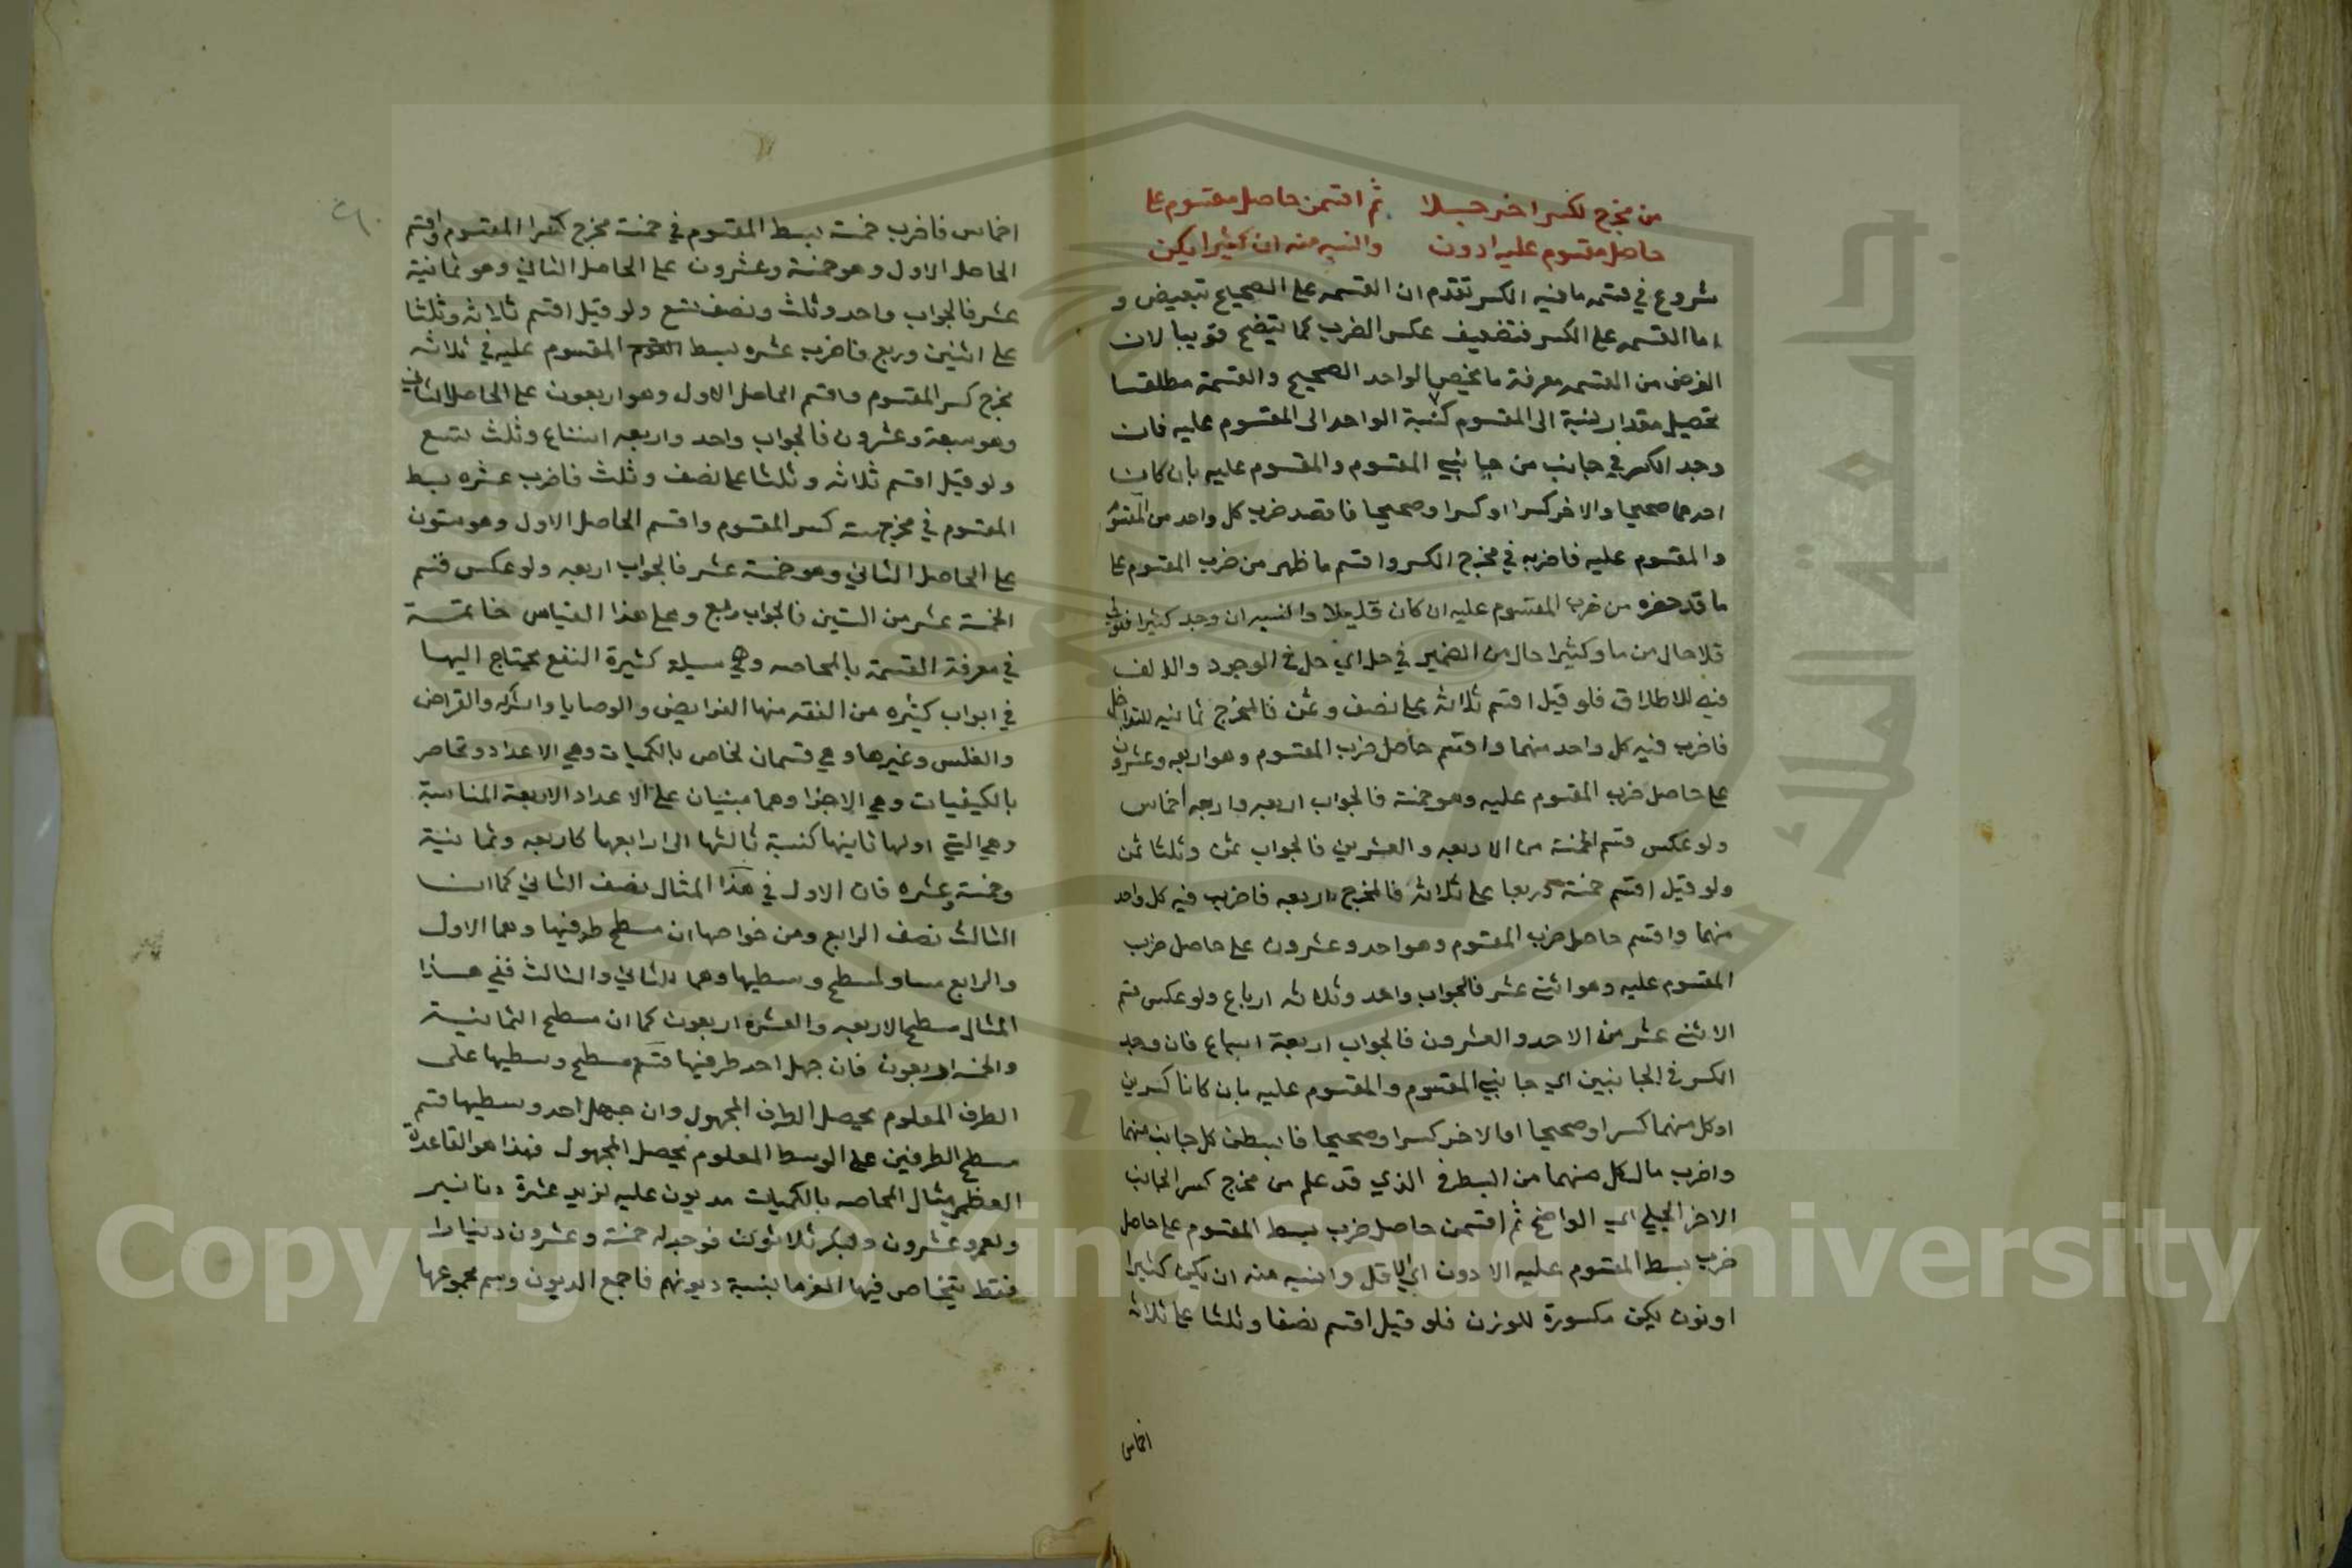 من مخرج لكسر اخر جلا ثم اقسمن حاصل مقسوم على
حاصل مقسوم عليه ادون وانسبه منه ان كثيرا يكن
شروع في قسمه ما فيه الكسر تقدم ان القسمه على الصحيح تبعيض و
اما القسمه على الكسر فتضعيف عكس الضرب كما يتضح قريبا لان
الغرض من القسمه معرفة ما يخص الواحد الصحيح والقسمة مطلقا
تحصيل مقدار نسبة الى المقسوم كنسبة الواحد الى المقسوم عليه فان
وجد الكسر في جانب من جانبي المقسوم والمقسوم عليه بان كان
احدهما صحيحا والاخر كسرا او كسرا وصحيحا فاقصد ضرب كل واحد من المقسوم
والمقسوم عليه فاضربه في مخرج الكسر واقسم ما ظهر من ضرب المقسوم على
ما قد من ضرب المقسوم عليه ان كان قليلا وانسبه ان وجد كثيرا
قلا حال من ما وكثيرا حال من الضمير في حل اي حل في الوجود والالف
فيه للاطلاق فلو قيل اقسم ثلاثه على نصف وثمن فالمخرج ثمانيه للتداخل
فاضرب فيه كل واحد منهما واقسم حاصل ضرب المقسوم وهو اربعه وعشرون
على حاصل ضرب المقسوم عليه وهو خمسة فالجواب اربعه واربعه اخماس
ولو عكس قسم الخمسة من الاربعه والعشرين فالجواب ثمن وثلثا ثمن
ولو قيل اقسم خمسة وربعا على ثلاثه فالمخرج اربعه فاضرب فيه كل واحد
منهما واقسم حاصل ضرب المقسوم وهو احد وعشرون على حاصل ضرب
المقسوم عليه وهو اثنى عشر فالجواب واحد وثلاثه ارباع ولو عكس قسم
الاثنى عشر من الاحد والعشرون فالجواب اربعة اسباع فان وجد
الكسر في الجانبين اي جانبي المقسوم والمقسوم عليه بان كانا كسرين
او كل منهما كسرا وصحيحا او الاخر كسرا وصحيحا فابسطن كل جانب منهما
واضرب مال كل منهما من البسط في الذي قد علم من مخرج كسر الجانب
الاخر الجلي اي الواضح ثم اقسمن حاصل ضرب بسط المقسوم على حاصل
ضرب بسط المقسوم عليه الادون اي الاقل وانسبه منه ان يكن كثيرا
او نون يكن مكسورة للوزن فلو قيل اقسم نصفا وثلثا على ثلاثه
اخماس
اخماس فاضرب خمسة بسط المقسوم في خمسة مخرج كسر المقسوم واقسم
الحاصل الاول وهو خمسة وعشرون على الحاصل الثاني وهو ثمانية
عشر فالجواب واحد وثلث ونصف تسع ولو قيل اقسم ثلاثه وثلثا
على اثنين وربع فاضرب عشره بسط المقسوم عليه في ثلاثه
مخرج كسر المقسوم واقسم الحاصل الاول وهو اربعون على الحاصل الثاني
وهو سبعة وعشرون فالجواب واحد واربعه اتساع وثلث تسع
ولو قيل اقسم ثلاثه وثلثا على نصف وثلث فاضرب عشره بسط
المقسوم في مخرج سته كسر المقسوم واقسم الحاصل الاول وهو ستون
على الحاصل الثاني وهو خمسة عشر فالجواب اربعه ولو عكس قسم
الخمسة عشر من الستين فالجواب ربع وعلى هذا القياس خاتمة
في معرفة القسمة بالمحاصه وهي كثيرة النفع يحتاج اليها
في ابواب كثيره من الفقه منها الفرايض والوصايا والشركه والقراض
والفلس وغيرها وهي قسمان تحاص بالكميات وهي الاعداد وتحاص
بالكيفيات وهي الاجزا وهما مبنيان على الاعداد الاربعة المتناسبة
وهي التي اولها ثانيها كنسبة ثالثها الى رابعها كاربعه وثمانية
وخمسة وعشره فان الاول في هذا المثال نصف الثاني كما ان
الثالث نصف الرابع ومن خواصها ان مسطح طرفيها وهما الاول
والرابع مساو لمسطح وسطيها وهما الثاني والثالث ففي هذا
المثال مسطح الاربعه والعشره اربعون كما ان مسطح الثمانية
والخمسه اربعون فان جهل احد طرفيها قسم مسطح وسطيها على
الطرف المعلوم يحصل الطرف المجهول وان جهل احد وسطيها قسم
مسطح الطرفين على الوسط المعلوم يحصل المجهول فهذا هو القاعدة
العظمى مثال المحاصه بالكميات مديون عليه لزيد عشرة دنانير
ولعمرو عشرون ولبكر ثلاثون فوجد له خمسة وعشرون دينارا
فقط يتحاص فيها الغرما بنسبة ديونهم فاجمع الديون وسم مجموعها
Copyright © King Saud University